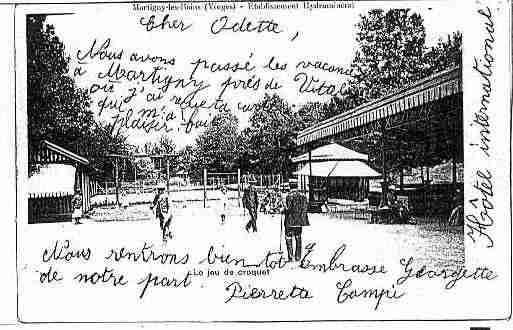 Martigny-les-Bains (Vosges) - Etablissement Hydrominéral
Cher Odette,
Nous avons passé les vacan
à Martigny près de Vital
où j'ai la cure
qui m'a
plaisir.
Hôtel international
Nous rentrons bientot Embrasse Georgette
de notre part.
Le jeu de croquet
Pierretta Campi